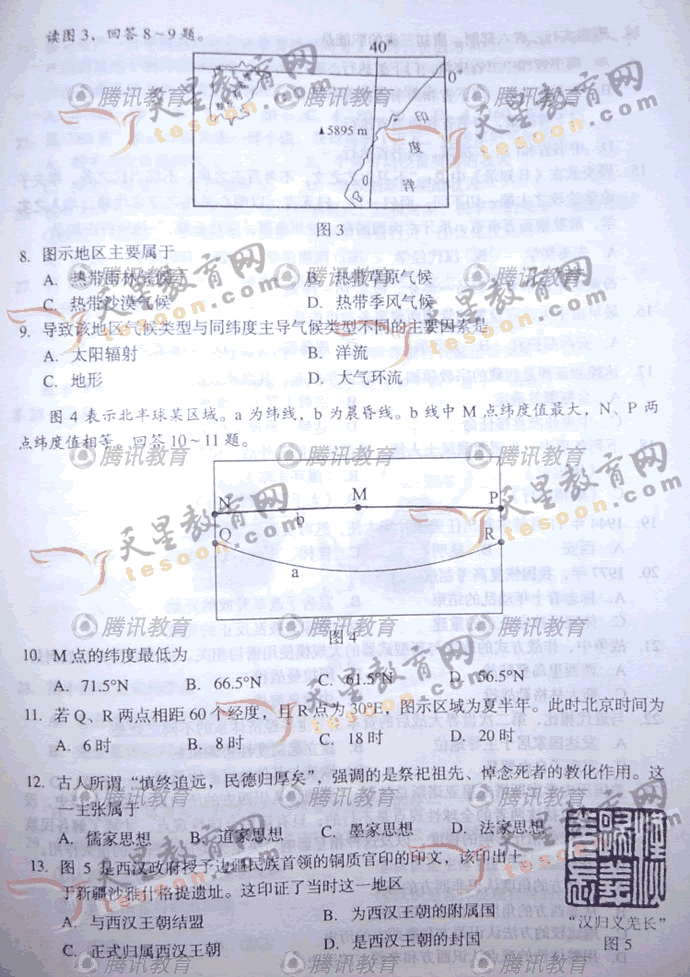 读图3，回答8~9题。
40°
0°
▲5895 m
印
度
洋
图3
8. 图示地区主要属于
A. 热带雨林气候 B. 热带草原气候
C. 热带沙漠气候 D. 热带季风气候
9. 导致该地区气候类型与同纬度主导气候类型不同的主要因素是
A. 太阳辐射 B. 洋流
C. 地形 D. 大气环流
图4表示北半球某区域。a为纬线，b为晨昏线。b线中M点纬度值最大，N、P两
点纬度值相等。回答10~11题。
N M P
b
Q R
a
图4
10. M点的纬度最低为
A. 71.5°N B. 66.5°N C. 61.5°N D. 56.5°N
11. 若Q、R两点相距60个经度，且R点为30°E，图示区域为夏半年。此时北京时间为
A. 6时 B. 8时 C. 18时 D. 20时
12. 古人所谓“慎终追远，民德归厚矣”，强调的是祭祀祖先、悼念死者的教化作用。这
一主张属于
A. 儒家思想 B. 道家思想 C. 墨家思想 D. 法家思想
13. 图5是西汉政府授予边疆民族首领的铜质官印的印文，该印出土
于新疆沙雅什格提遗址。这印证了当时这一地区
A. 与西汉王朝结盟 B. 为西汉王朝的附属国
C. 正式归属西汉王朝 D. 是西汉王朝的封国
“汉归义羌长”
图5
天星教育网
tesoon.com
腾讯教育